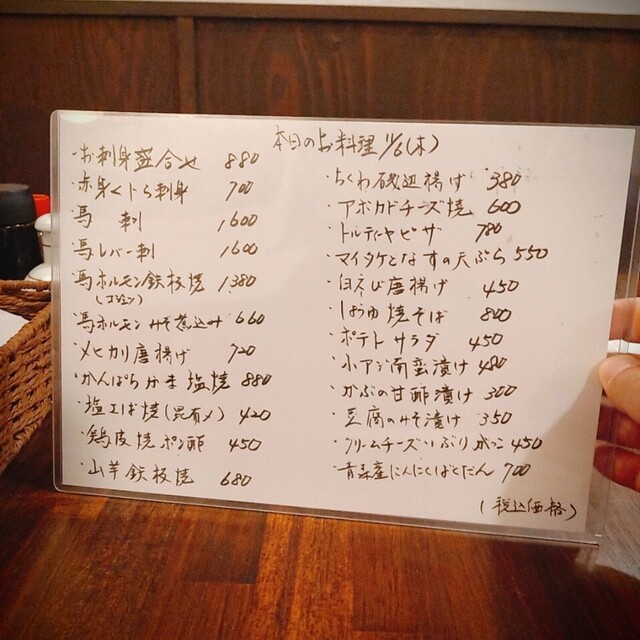 本日のお料理 11/6(木)
・お刺身盛合せ 880
・赤身くじら刺身 700
・馬刺 1,600
・馬レバー刺 1,600
・馬ホルモン鉄板焼 1,380
・馬ホルモンみそ煮込み 660
・メヒカリ唐揚げ 720
・かんぱちかま塩焼 880
・塩エリ焼(昆布〆) 420
・鶏皮焼ポン酢 450
・山芋鉄板焼 680
・ちくわ磯辺揚げ 380
・アボカドチーズ焼 600
・トルティーヤピザ 780
・マイタケとなすの天ぷら 550
・白ネび唐揚げ 450
・しょうゆ焼そば 800
・ポテトサラダ 450
・小アジ南蛮漬け 480
・かぶの甘酢漬け 300
・豆腐のみそ漬け 350
・クリームチーズいぶりがっこ 450
・青森産にんにくばくだん 700
(税込価格)